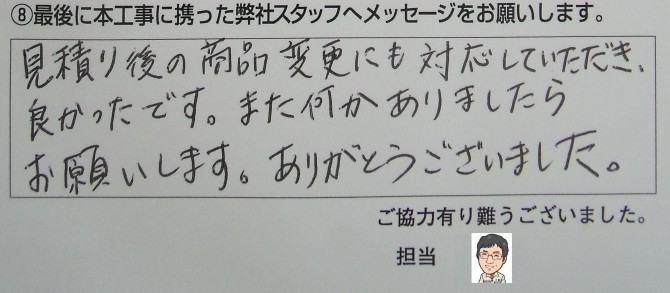 ⑧最後に本工事に携った弊社スタッフへメッセージをお願いします。
見積り後の商品変更にも対応していただき、
良かったです。また何かありましたら
お願いします。ありがとうございました。
ご協力有り難うございました。
担当